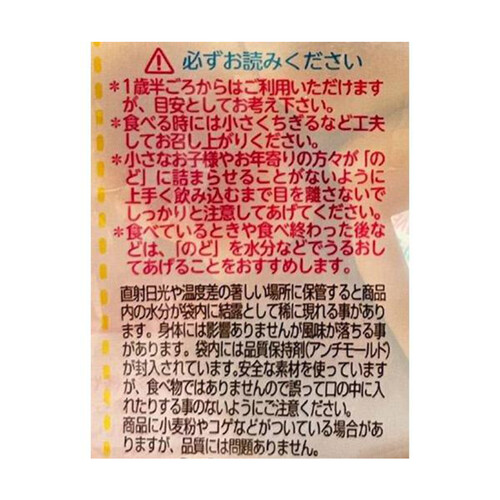 必ずお読みください
＊1歳半ごろからはご利用いただけます
が、目安としてお考え下さい。
＊食べる時には小さくちぎるなど工夫
してお召し上がりください。
＊小さなお子様やお年寄りの方々が「の
ど」に詰まらせることがないように
上手く飲み込むまで目を離さないで
しっかりと注意してあげてください。
＊食べているときや食べ終わった後な
どは、「のど」を水分などでうるおし
てあげることをおすすめします。
直射日光や温度差の著しい場所に保管すると商品
内の水分が袋内に結露として稀に現れる事があり
ます。身体には影響ありませんが風味が落ちる事
があります。袋内には品質保持剤(アンチモールド)
が封入されています。安全な素材を使っています
が、食べ物ではありませんので誤って口の中に入
れたりする事のないようにご注意ください。
商品に小麦粉やコゲなどがついている場合があ
りますが、品質には問題ありません。